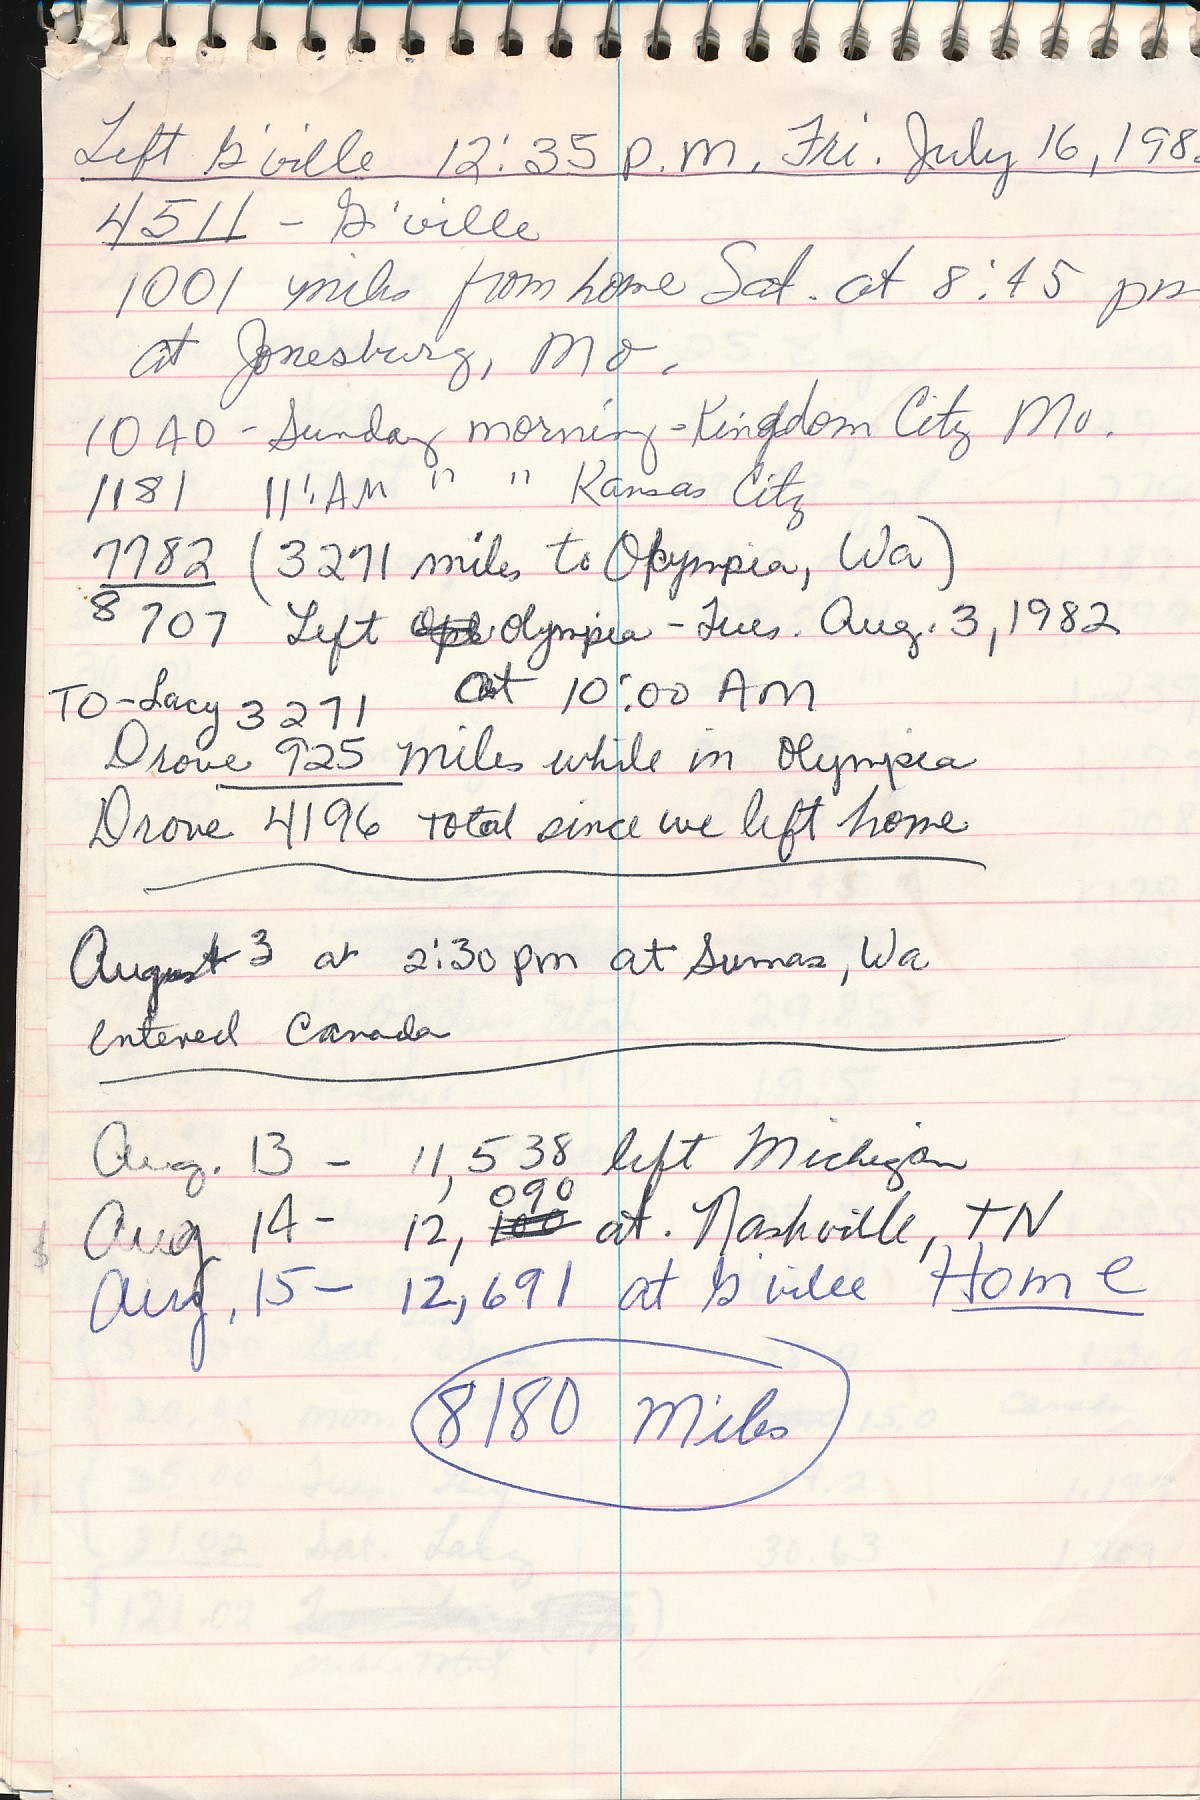 Left G'ville 12:35 p.m. Fri. July 16, 198
4511 - G'ville
1001 miles from home Sat. at 8:45 pm
at Jonesburg, Mo.
1040 - Sunday morning - Kingdom City Mo.
1181 11:AM " " Kansas City
7782 (3271 miles to Olympia, Wa)
8707 Left Olympia - Tues. Aug. 3, 1982
at 10:00 AM
TO - Lacy 3271
Drove 925 miles while in Olympia
Drove 4196 total since we left home
August 3 at 2:30 pm at Sumas, Wa
entered Canada
Aug. 13 - 11,538 left Michigan
Aug 14 - 12, 090 at. Nashville, TN
Aug. 15 - 12,691 at G'ville Home
8180 Miles